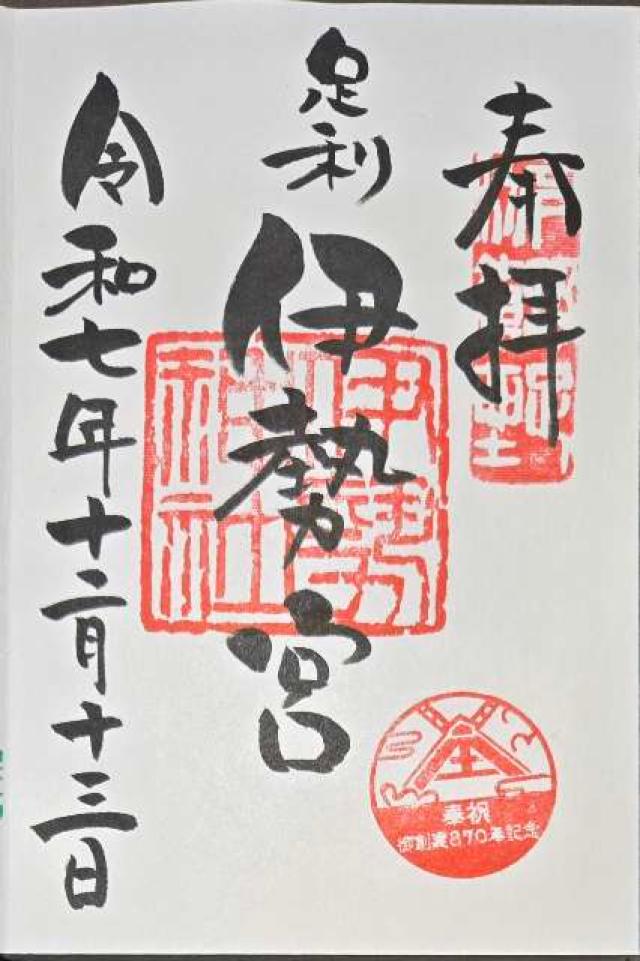 奉拝
足利
伊勢宮
令和七年十二月十三日
伊勢
神社
奉祝
御創建870年記念